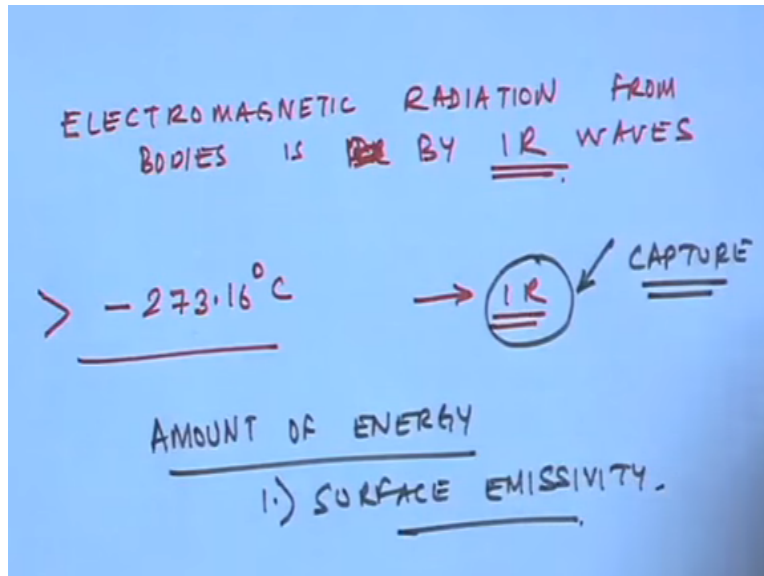 ELECTROMAGNETIC RADIATION FROM
BODIES IS BY IR WAVES
> -273.16°C → IR CAPTURE
AMOUNT OF ENERGY
1.) SURFACE EMISSIVITY.